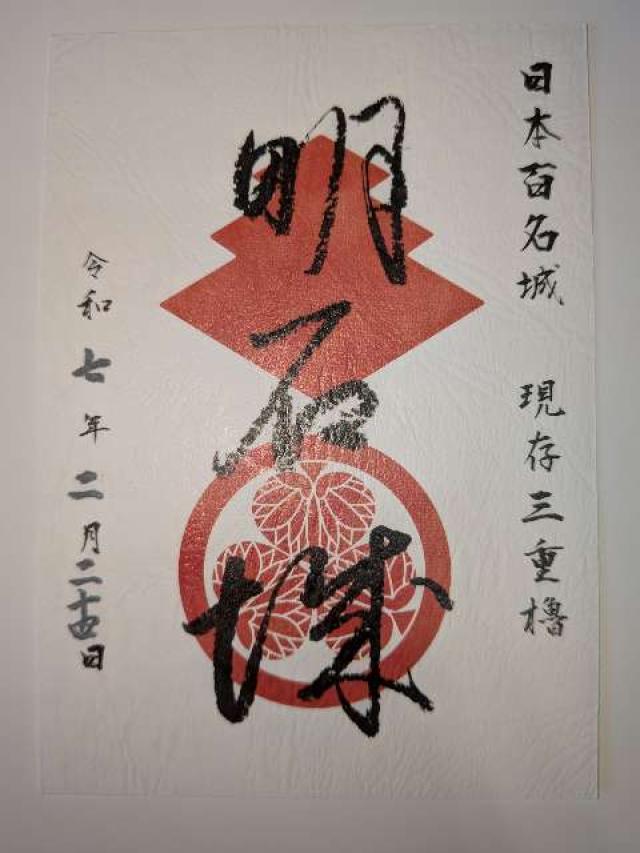 日本百名城　現存三重櫓
明石城
令和七年二月二十四日